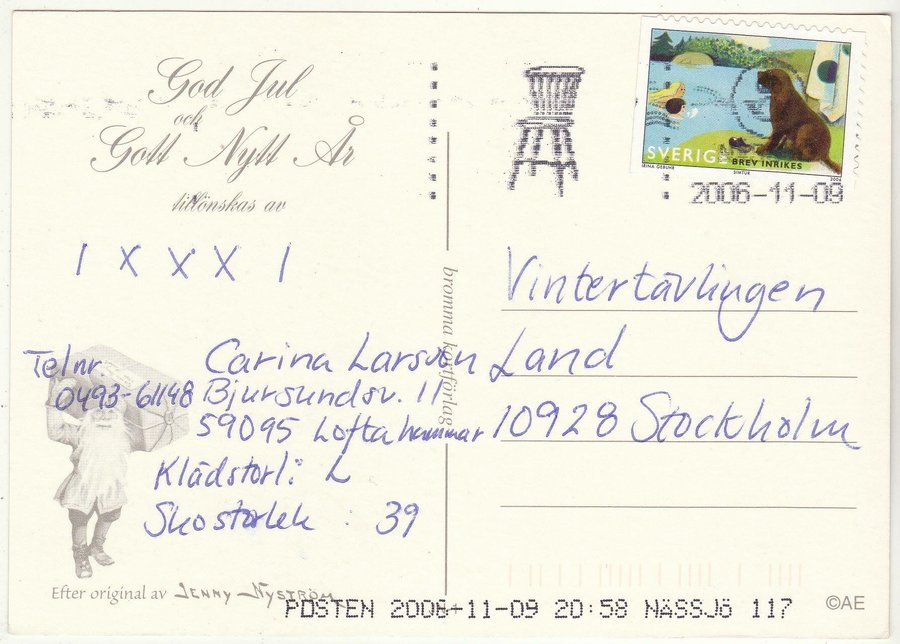 God Jul
och
Gott Nytt År
tillönskas av
1 X X X 1
Tel nr.
0493-61148
Carina Larsson
Bjursundsv. 11
59095 Loftahammar
Klädstorl: L
Skostorlek : 39
Efter original av JENNY NYSTRÖM
bromma kortförlag
SVERIGE BREV INRIKES
SIMTUR
2006
2006-11-09
Vintertävlingen
Land
10928 Stockholm
POSTEN 2006-11-09 20:58 NÄSSJÖ 117
©AE